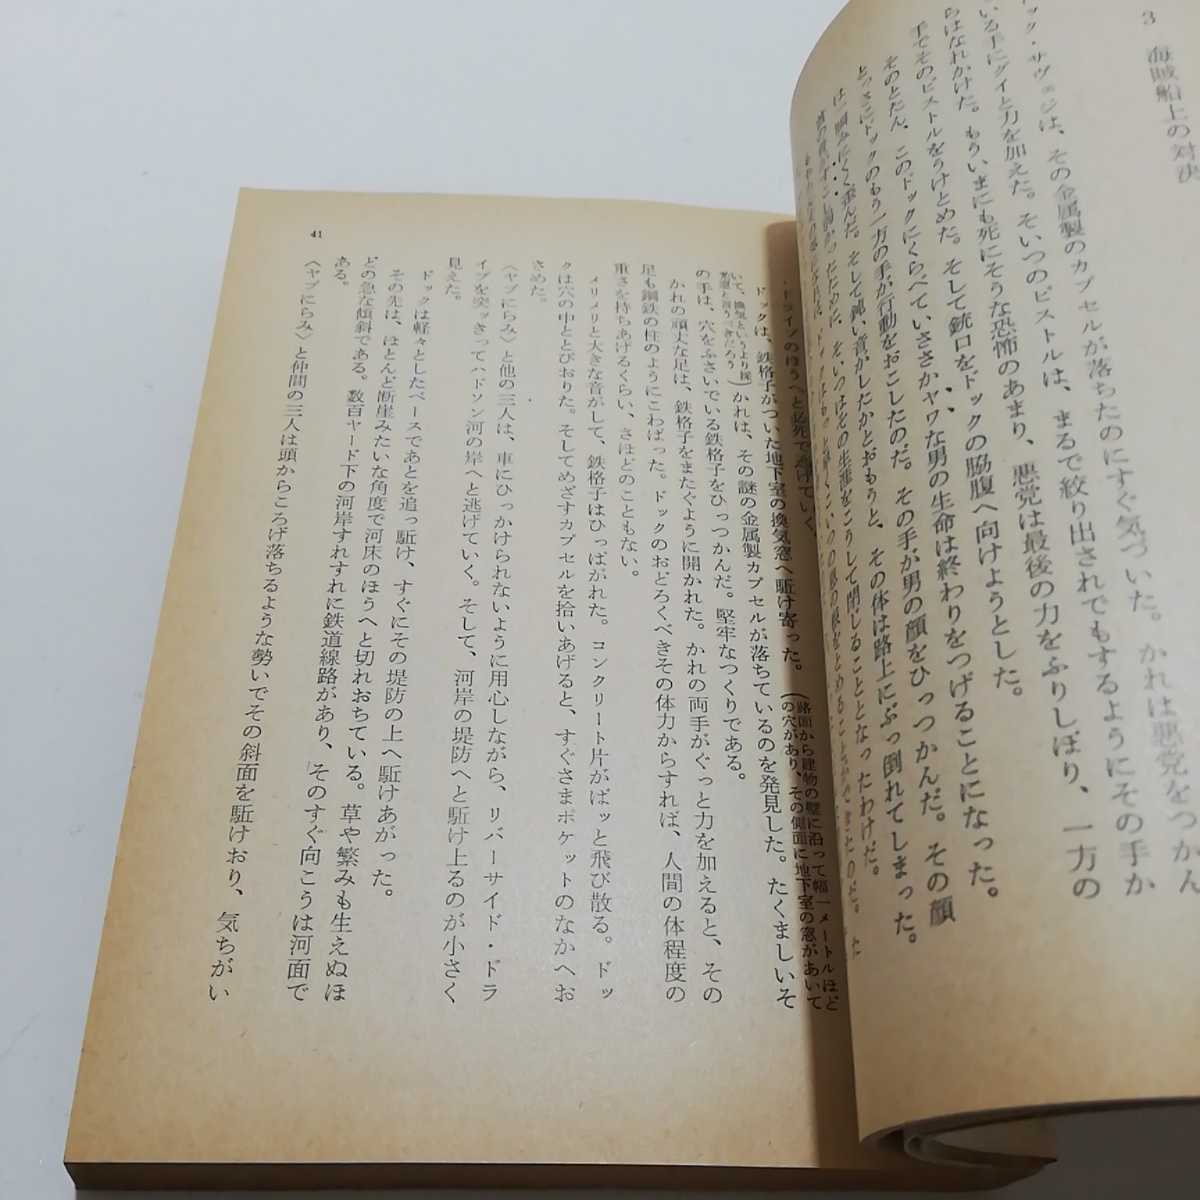 3 海賊船上の対決
ック・サヴェジは、その金属製のカプセルが落ちたのにすぐ気づいた。かれは悪党をつかん
いる手にグイと力を加えた。そいつのピストルは、まるで絞り出されでもするようにその手か
らはなれかけた。もういまにも死にそうな恐怖のあまり、悪党は最後の力をふりしぼり、一方の
手でそのピストルをうけとめた。そして銃口をドックの脇腹へ向けようとした。
そのとたん、このドックにくらべていささかヤワな男の生命は終わりをつげることになった。
とっさにドックのもう一方の手が行動をおこしたのだ。その手が男の顔をひっつかんだ。その顔
は一瞬みにくく歪んだ。そして鈍い音がしたかとおもうと、その体は路上にぶっ倒れてしまった。
ために、そいつはその生涯をこうして閉じることとなったわけだ。
・ドライブのほうへと必死で逃げていく。
ドックは、鉄格子がついた地下室の換気窓へ駈け寄った。(路面から建物の壁に沿って幅一メートルほど
の穴があり、その側面に地下室の窓があいて
いて、換気というより採
光窓と言うべきだろう)かれは、その謎の金属製カプセルが落ちているのを発見した。たくましいそ
の手は、穴をふさいでいる鉄格子をひっつかんだ。堅牢なつくりである。
かれの頑丈な足は、鉄格子をまたぐように開かれた。かれの両手がぐっと力を加えると、その
足も鋼鉄の柱のようにこわばった。ドックのおどろくべきその体力からすれば、人間の体程度の
重さを持ちあげるくらい、さほどのこともない。
メリメリと大きな音がして、鉄格子はひっぱがれた。コンクリート片がぱッと飛び散る。ドッ
クは穴の中ととびおりた。そしてめざすカプセルを拾いあげると、すぐさまポケットのなかへお
さめた。
〈ヤブにらみ〉と他の三人は、車にひっかけられないように用心しながら、リバーサイド・ドラ
イブを突っきってハドソン河の岸へと逃げていく。そして、河岸の堤防へと駈け上るのが小さく
見えた。
ドックは軽々としたペースであとを追っ駈け、すぐにその堤防の上へ駈けあがった。
その先は、ほとんど断崖みたいな角度で河床のほうへと切れおちている。草や繁みも生えぬほ
どの急な傾斜である。数百ヤード下の河岸すれすれに鉄道線路があり、そのすぐ向こうは河面で
ある。
〈ヤブにらみ〉と仲間の三人は頭からころげ落ちるような勢いでその斜面を駈けおり、気ちがい
41